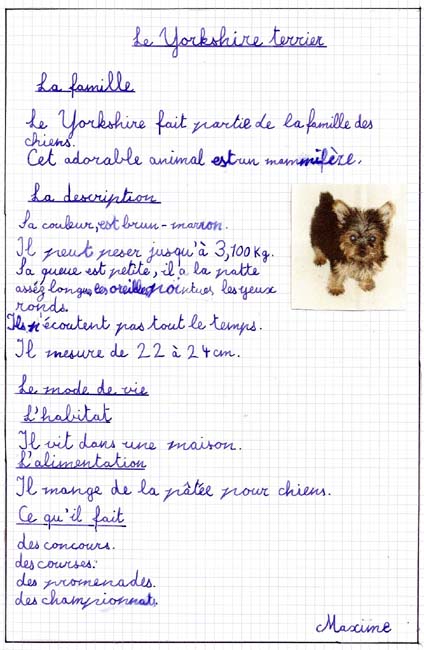 Le Yorkshire terrier
La famille
Le Yorkshire fait partie de la famille des
chiens.
Cet adorable animal est un mammifère.
La description
Sa couleur, est brun-marron.
Il peut peser jusqu'à 3,100 Kg.
Sa queue est petite, il a la patte
assez longue, les oreilles pointues, les yeux
ronds.
Ils n'écoutent pas tout le temps.
Il mesure de 22 à 24 cm.
Le mode de vie
L'habitat
Il vit dans une maison.
L'alimentation
Il mange de la pâtée pour chiens.
Ce qu'il fait
des concours.
des courses.
des promenades.
des championnats.
Maxime